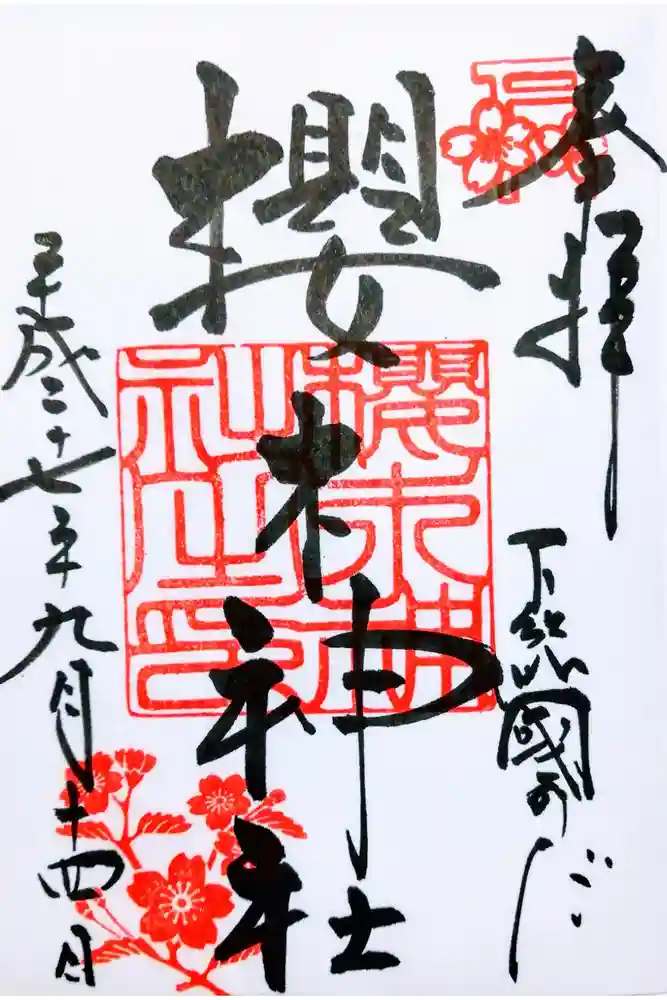 奉拝
下総國のだ
櫻木神社
櫻木神社之印
平成二十七年九月十四日